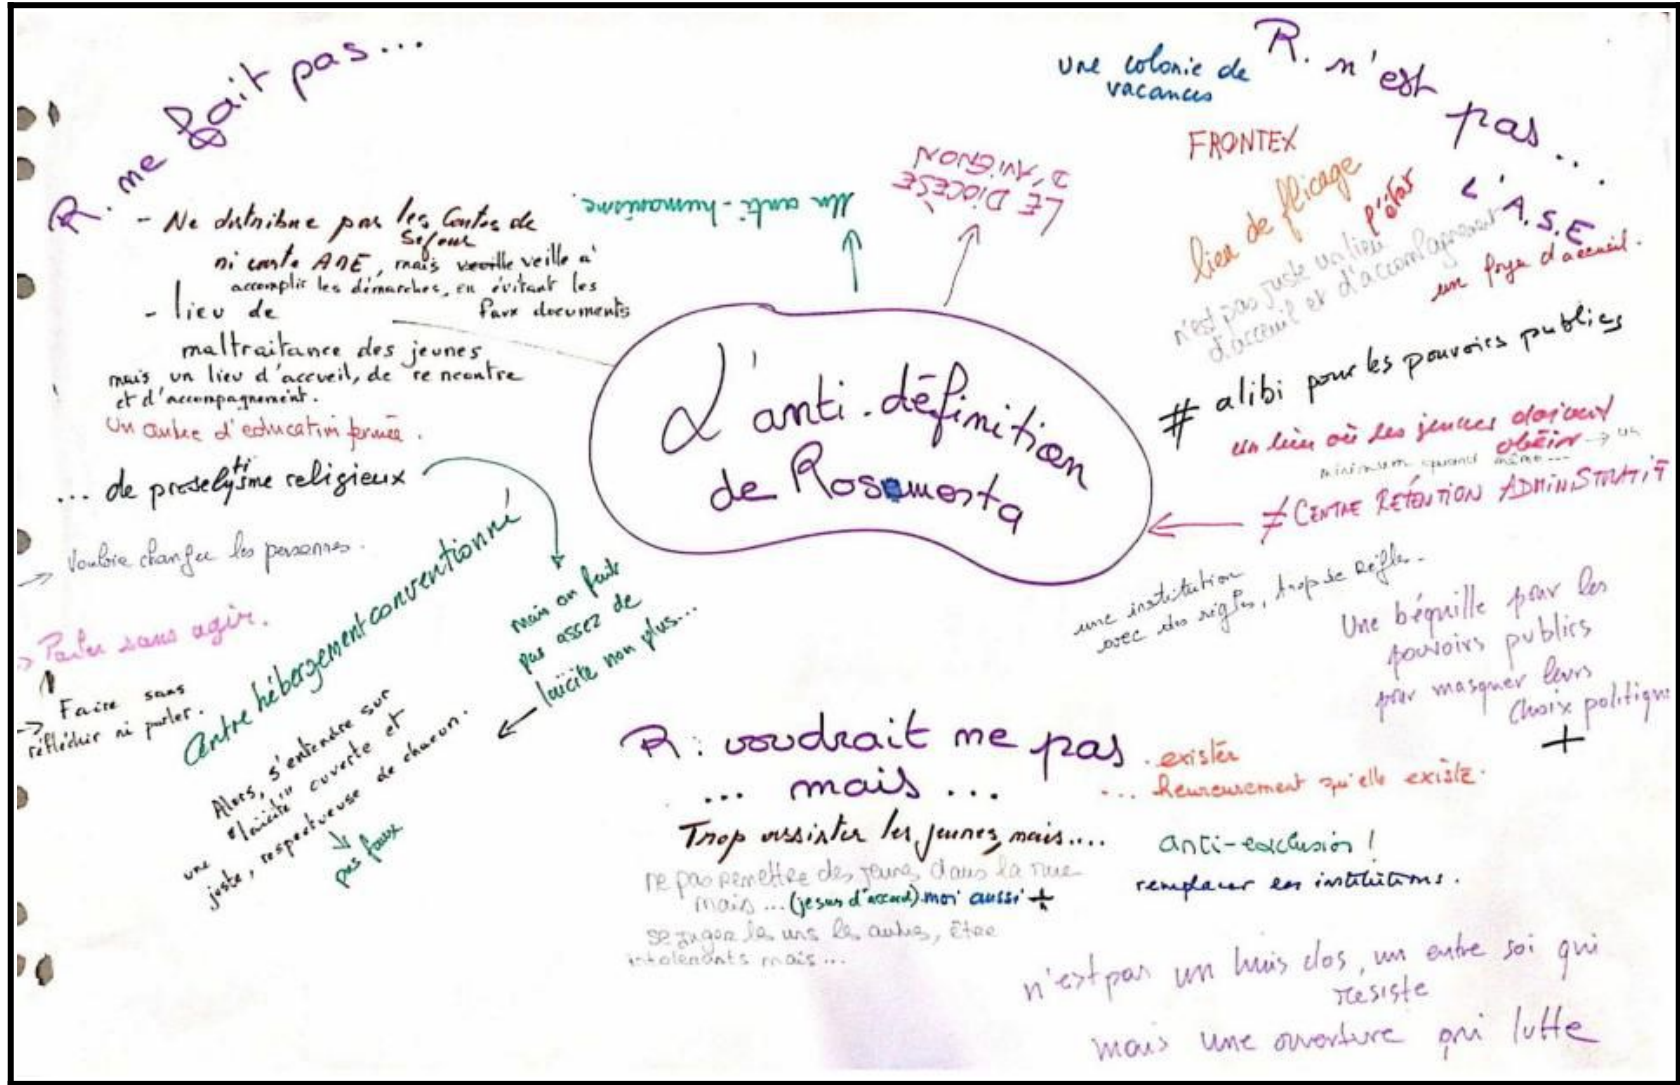 R. ne fait pas...
- Ne distribue pas les Cartes de
Séjour
ni carte AME, mais veille à
accomplir les démarches, en évitant les
faux documents
- lieu de
maltraitance des jeunes
mais un lieu d'accueil, de rencontre
et d'accompagnement.
Un centre d'éducation fermée.
... de proselytisme religieux
mais on fait
pas assez de
laïcité non plus...
Alors, s'entendre sur
une "laïcité" ouverte et
juste, respectueuse de chacun.
pas faux
Vouloir changer les personnes.
→ Parler sans agir.
→ Faire sans
réfléchir ni parler.
Centre hébergement conventionné
Un anti-humanisme
LE DIOCÈSE
D'AVIGNON
L'anti-définition
de Rosmerta
R. n'est pas...
une colonie de
vacances
FRONTEX
lieu de flicage
l'état
L'A.S.E
n'est pas juste un lieu
d'acceuil et d'accompagnement
un foyer d'accueil.
# alibi pour les pouvoirs publics
un lieu où les jeunes doivent
obéir → un
minimum quand même...
≠ CENTRE RÉTENTION ADMINISTRATIF
une institution
avec des règles, trop de règles.
Une béquille pour les
pouvoirs publics
pour masquer leurs
choix politiques
+
R. voudrait ne pas
... mais ...
. exister
... heureusement qu'elle existe.
Trop assister les jeunes, mais....
ne pas remettre des jeunes dans la rue
mais ... (je suis d'accord) moi aussi +
se juger les uns les autres, être
intolérants mais...
anti-exclusion !
remplacer les institutions.
n'est pas un huis clos, un entre soi qui
resiste
mais une ouverture qui lutte